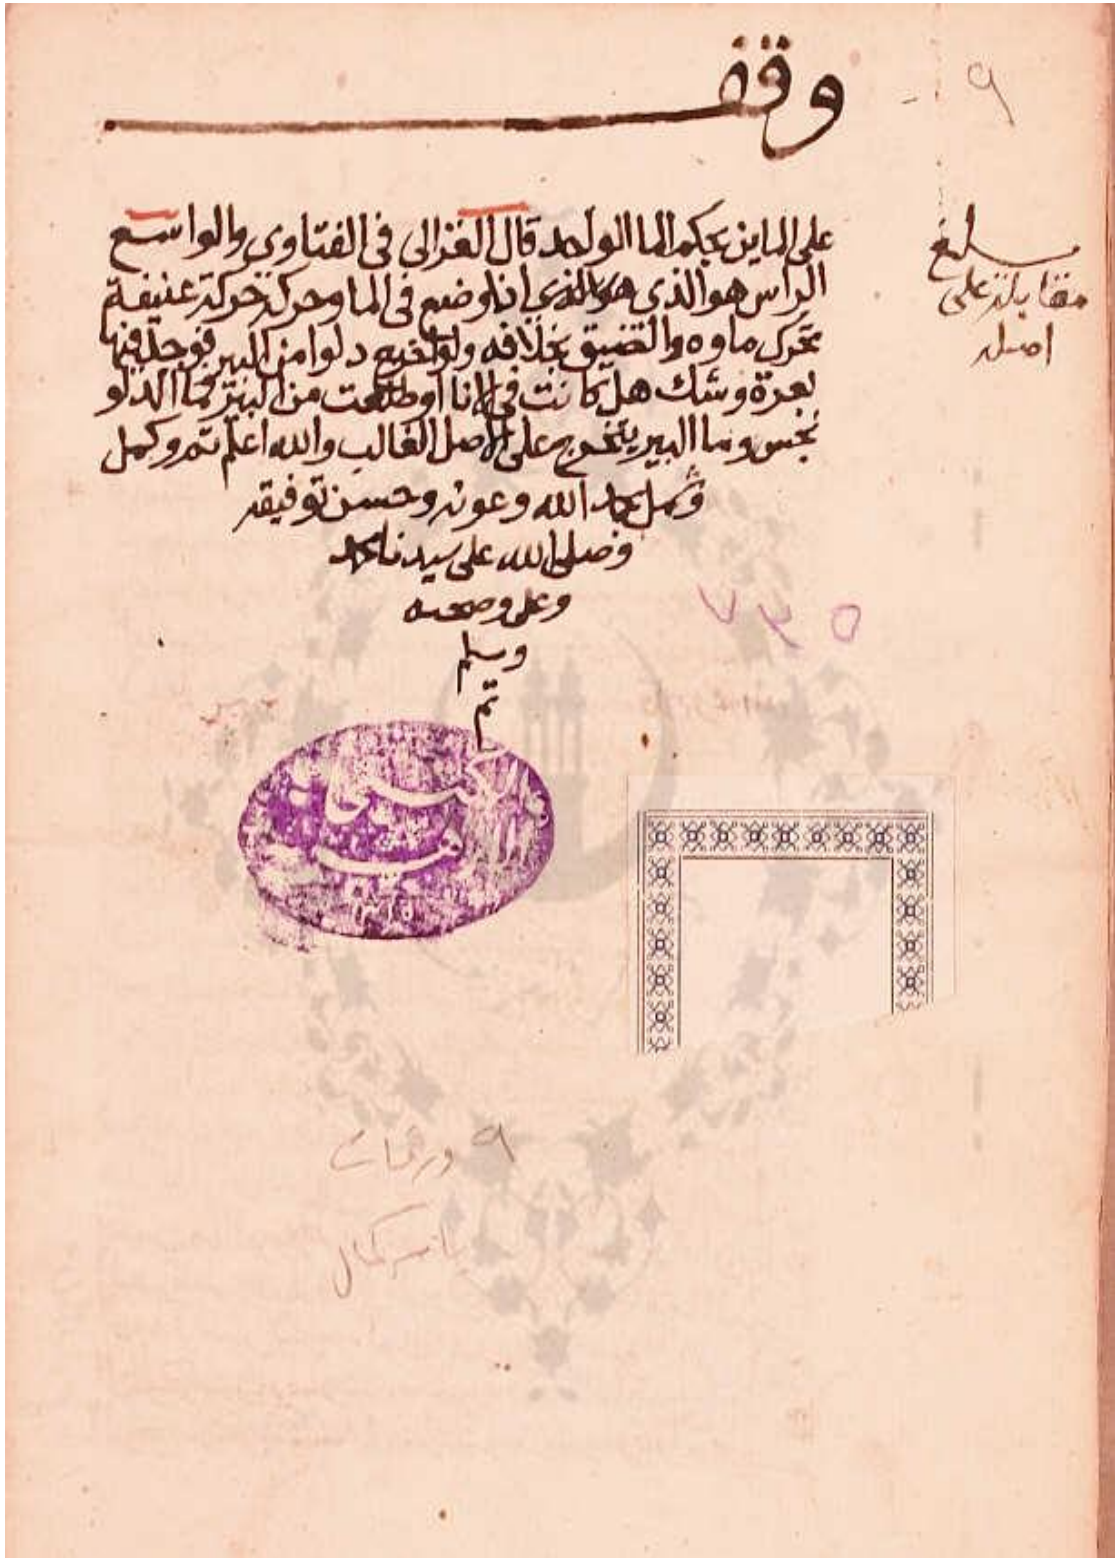 وقف
٩
على الماين بحكم الما الواحد قال الغزالي في الفتاوي والواسع
الراس هو الذي اذا وضع في الما وحركه حركة عنيفة
تحرك ماوه والضيق بخلافه ولو اخرج دلوا من البير فوجد فيها
بعرة وشك هل كانت في الانا او طلعت من البير فما الدلو
نجس وما البير يتخرج على الاصل الغالب والله اعلم تم وكمل
وكمل بحمد الله وعونه وحسن توفيقه
وصلى الله على سيدنا محمد
وعلى وصحبه
وسلم
تم
بلغ
مقابلة على
اصله
٥٣٧
١٣١٥
٩ ورقات